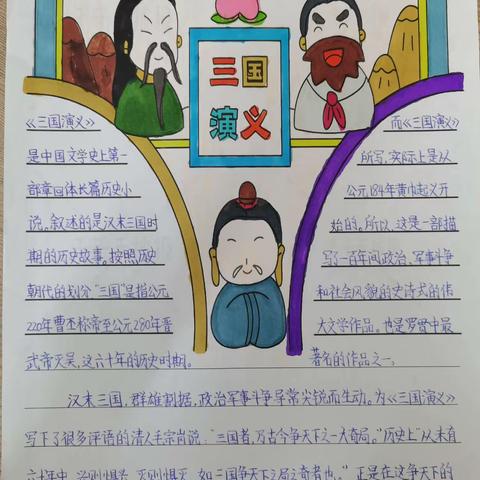 三国
演义
《三国演义》
是中国文学史上第一
部章回体长篇历史小
说。叙述的是汉末三国时
期的历史故事。按照历史
朝代的划分“三国”是指公元
220年曹丕称帝至公元280年晋
武帝灭吴，这六十年的历史时期。
而《三国演义》
所写，实际上是从
公元184年黄巾起义开
始的。所以，这是一部描
写了一百年间政治、军事斗争
和社会风貌的史诗式的伟
大文学作品。也是罗贯中最
著名的作品之一，
汉末三国，群雄割据，政治军事斗争异常尖锐而生动。为《三国演义》
写下了很多评语的清人毛宗岗说：“三国者，乃古今争天下之一大奇局。”历史上“从未有
六十年中，兴则俱兴，灭则俱灭，如三国争天下之局之奇者也。”正是在这争天下的